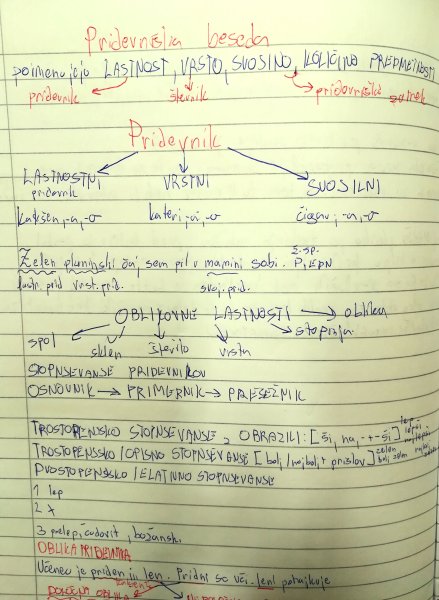 Pridevniška beseda
poimenujejo LASTNOST, VRSTO, SVOJINO, KOLIČINO PREDMETNOSTI
pridevnik števnik pridevniški
Pridevnik
LASTNOSTNI VRSTNI SVOJILNI
pridevnik
kakšen, -a, -o kateri, -a, -o čigav, -a, -o
ž. sp.
Zelen planinski čaj sem pil v mamini sobi. P, EDN
lastn. prid. vrst. prid. svoj. prid.
OBLIKOVNE LASTNOSTI → oblika
spol sklon število vrsta stopnja
STOPNJEVANJE PRIDEVNIKOV
OSNOVNIK → PRIMERNIK → PRESEŽNIK
TROSTOPENJSKO STOPNJEVANJE Z OBRAZILI: [ši, naj -+-ši] lep lepši najlepši
TROSTOPENJSKO / OPISNO STOPNJEVANJE [bolj / najbolj + prislov] zelen bolj zelen najbolj
DVOSTOPENJSKO / ELATIVNO STOPNJEVANJE
1 lep
2 x
3 prelep, čudovit, božanski
OBLIKA PRIDEVNIKA
Učenec je priden in len. Pridni se uči, leni potrebuje
DOLOČNA OBLIKA